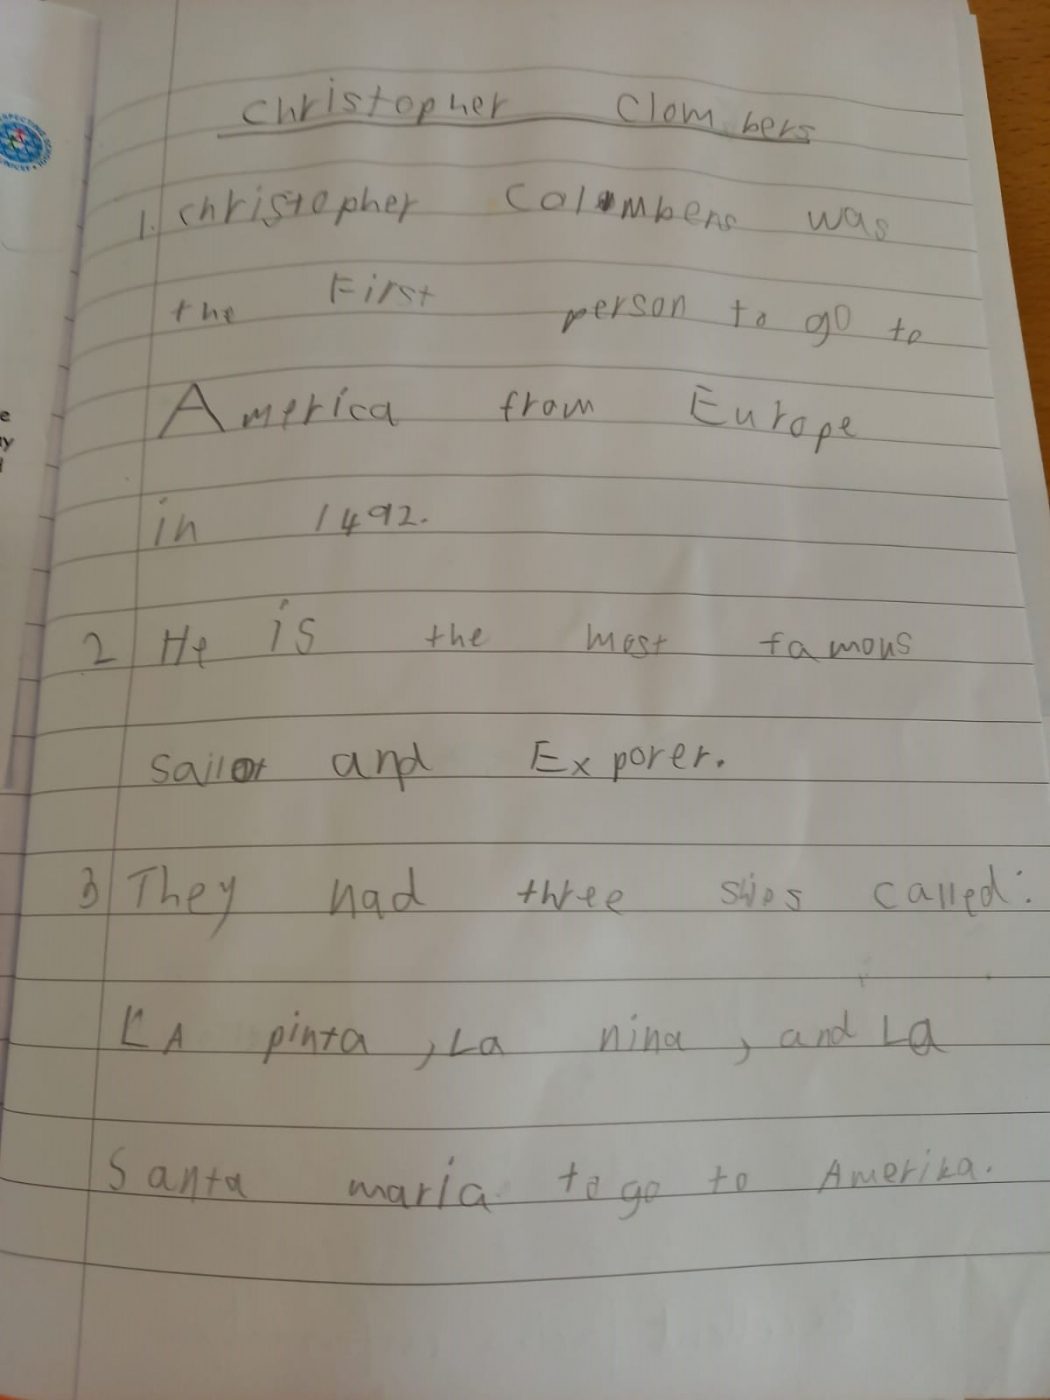 Christopher Clom bers
1. christopher Colombens was
the First person to go to
America from Europe
in 1492.
2 He is the most famous
sailor and Ex porer.
3 They had three ships called:
LA pinta, La nina, and La
Santa maria to go to Amerika.